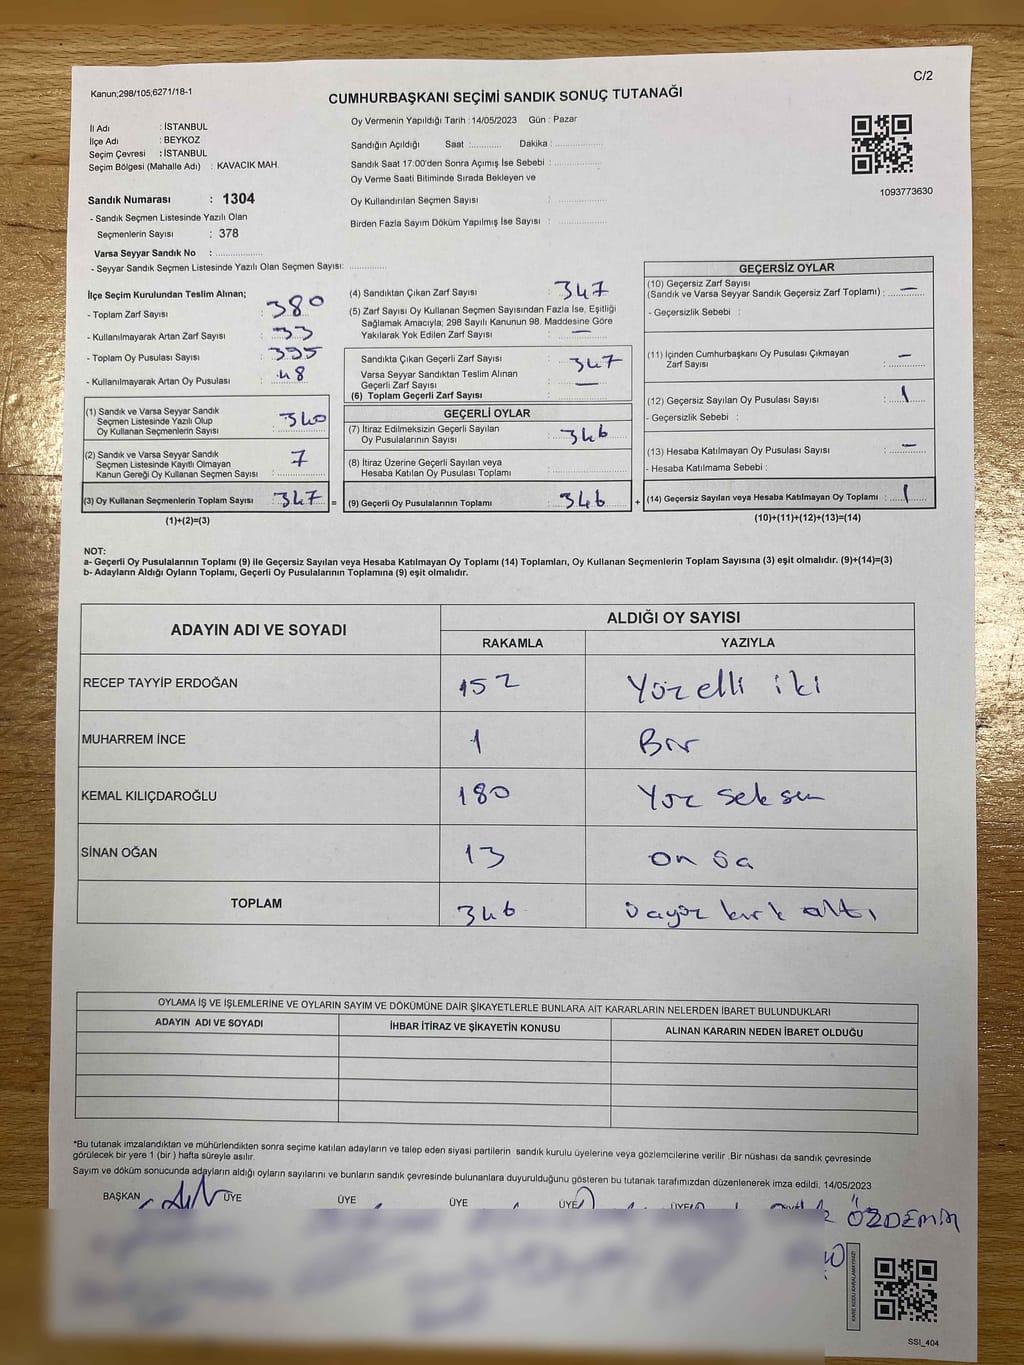 C/2
Kanun;298/105;6271/18-1
CUMHURBAŞKANI SEÇİMİ SANDIK SONUÇ TUTANAĞI
İl Adı : İSTANBUL
İlçe Adı : BEYKOZ
Seçim Çevresi : İSTANBUL
Seçim Bölgesi (Mahalle Adı) : KAVACIK MAH.
Sandık Numarası : 1304
- Sandık Seçmen Listesinde Yazılı Olan
Seçmenlerin Sayısı : 378
Varsa Seyyar Sandık No : ................
- Seyyar Sandık Seçmen Listesinde Yazılı Olan Seçmen Sayısı: ............
Oy Vermenin Yapıldığı Tarih : 14/05/2023 Gün : Pazar
Sandığın Açıldığı Saat :.......... Dakika : ...............
Sandık Saat 17:00'den Sonra Açımış İse Sebebi : ...............
Oy Verme Saati Bitiminde Sırada Bekleyen ve
Oy Kullandırılan Seçmen Sayısı : ...............
Birden Fazla Sayım Döküm Yapılmış İse Sayısı : ...............
1093773630
İlçe Seçim Kurulundan Teslim Alınan;
- Toplam Zarf Sayısı : 380
- Kullanılmayarak Artan Zarf Sayısı : 33
- Toplam Oy Pusulası Sayısı : 395
- Kullanılmayarak Artan Oy Pusulası : 48
(1) Sandık ve Varsa Seyyar Sandık
Seçmen Listesinde Yazılı Olup
Oy Kullanan Seçmenlerin Sayısı : 340
(2) Sandık ve Varsa Seyyar Sandık
Seçmen Listesinde Kayıtlı Olmayan
Kanun Gereği Oy Kullanan Seçmen Sayısı : 7
(3) Oy Kullanan Seçmenlerin Toplam Sayısı : 347 =
(1)+(2)=(3)
(4) Sandıktan Çıkan Zarf Sayısı : 347
(5) Zarf Sayısı Oy Kullanan Seçmen Sayısından Fazla İse, Eşitliği
Sağlamak Amacıyla; 298 Sayılı Kanunun 98. Maddesine Göre
Yakılarak Yok Edilen Zarf Sayısı : —
Sandıkta Çıkan Geçerli Zarf Sayısı : 347
Varsa Seyyar Sandıktan Teslim Alınan
Geçerli Zarf Sayısı : —
(6) Toplam Geçerli Zarf Sayısı :
GEÇERLİ OYLAR
(7) İtiraz Edilmeksizin Geçerli Sayılan
Oy Pusulalarının Sayısı : 346
(8) İtiraz Üzerine Geçerli Sayılan veya
Hesaba Katılan Oy Pusulası Toplamı :
(9) Geçerli Oy Pusulalarının Toplamı : 346 +
GEÇERSİZ OYLAR
(10) Geçersiz Zarf Sayısı
(Sandık ve Varsa Seyyar Sandık Geçersiz Zarf Toplamı) : —
- Geçersizlik Sebebi :
(11) İçinden Cumhurbaşkanı Oy Pusulası Çıkmayan
Zarf Sayısı : —
(12) Geçersiz Sayılan Oy Pusulası Sayısı : 1
- Geçersizlik Sebebi :
(13) Hesaba Katılmayan Oy Pusulası Sayısı : —
- Hesaba Katılmama Sebebi :
(14) Geçersiz Sayılan veya Hesaba Katılmayan Oy Toplamı : 1
(10)+(11)+(12)+(13)=(14)
NOT:
a- Geçerli Oy Pusulalarının Toplamı (9) ile Geçersiz Sayılan veya Hesaba Katılmayan Oy Toplamı (14) Toplamları, Oy Kullanan Seçmenlerin Toplam Sayısına (3) eşit olmalıdır. (9)+(14)=(3)
b- Adayların Aldığı Oyların Toplamı, Geçerli Oy Pusulalarının Toplamına (9) eşit olmalıdır.
ADAYIN ADI VE SOYADI ALDIĞI OY SAYISI
RAKAMLA YAZIYLA
RECEP TAYYİP ERDOĞAN 152 Yüzelli iki
MUHARREM İNCE 1 Bir
KEMAL KILIÇDAROĞLU 180 Yüz seksen
SİNAN OĞAN 13 on üç
TOPLAM 346 üçyüz kırk altı
OYLAMA İŞ VE İŞLEMLERİNE VE OYLARIN SAYIM VE DÖKÜMÜNE DAİR ŞİKAYETLERLE BUNLARA AİT KARARLARIN NELERDEN İBARET BULUNDUKLARI
ADAYIN ADI VE SOYADI İHBAR İTİRAZ VE ŞİKAYETİN KONUSU ALINAN KARARIN NEDEN İBARET OLDUĞU
*Bu tutanak imzalandıktan ve mühürlendikten sonra seçime katılan adayların ve talep eden siyasi partilerin sandık kurulu üyelerine veya gözlemcilerine verilir .Bir nüshası da sandık çevresinde
görülecek bir yere 1 (bir ) hafta süreyle asılır.
Sayım ve döküm sonucunda adayların aldığı oyların sayılarını ve bunların sandık çevresinde bulunanlara duyurulduğunu gösteren bu tutanak tarafımızdan düzenlenerek imza edildi. 14/05/2023
BAŞKAN ÜYE ÜYE ÜYE ÜYE ÜYE
ÖZDEMİR
KARE KODU KARALAMAYINIZ!
SSI_404